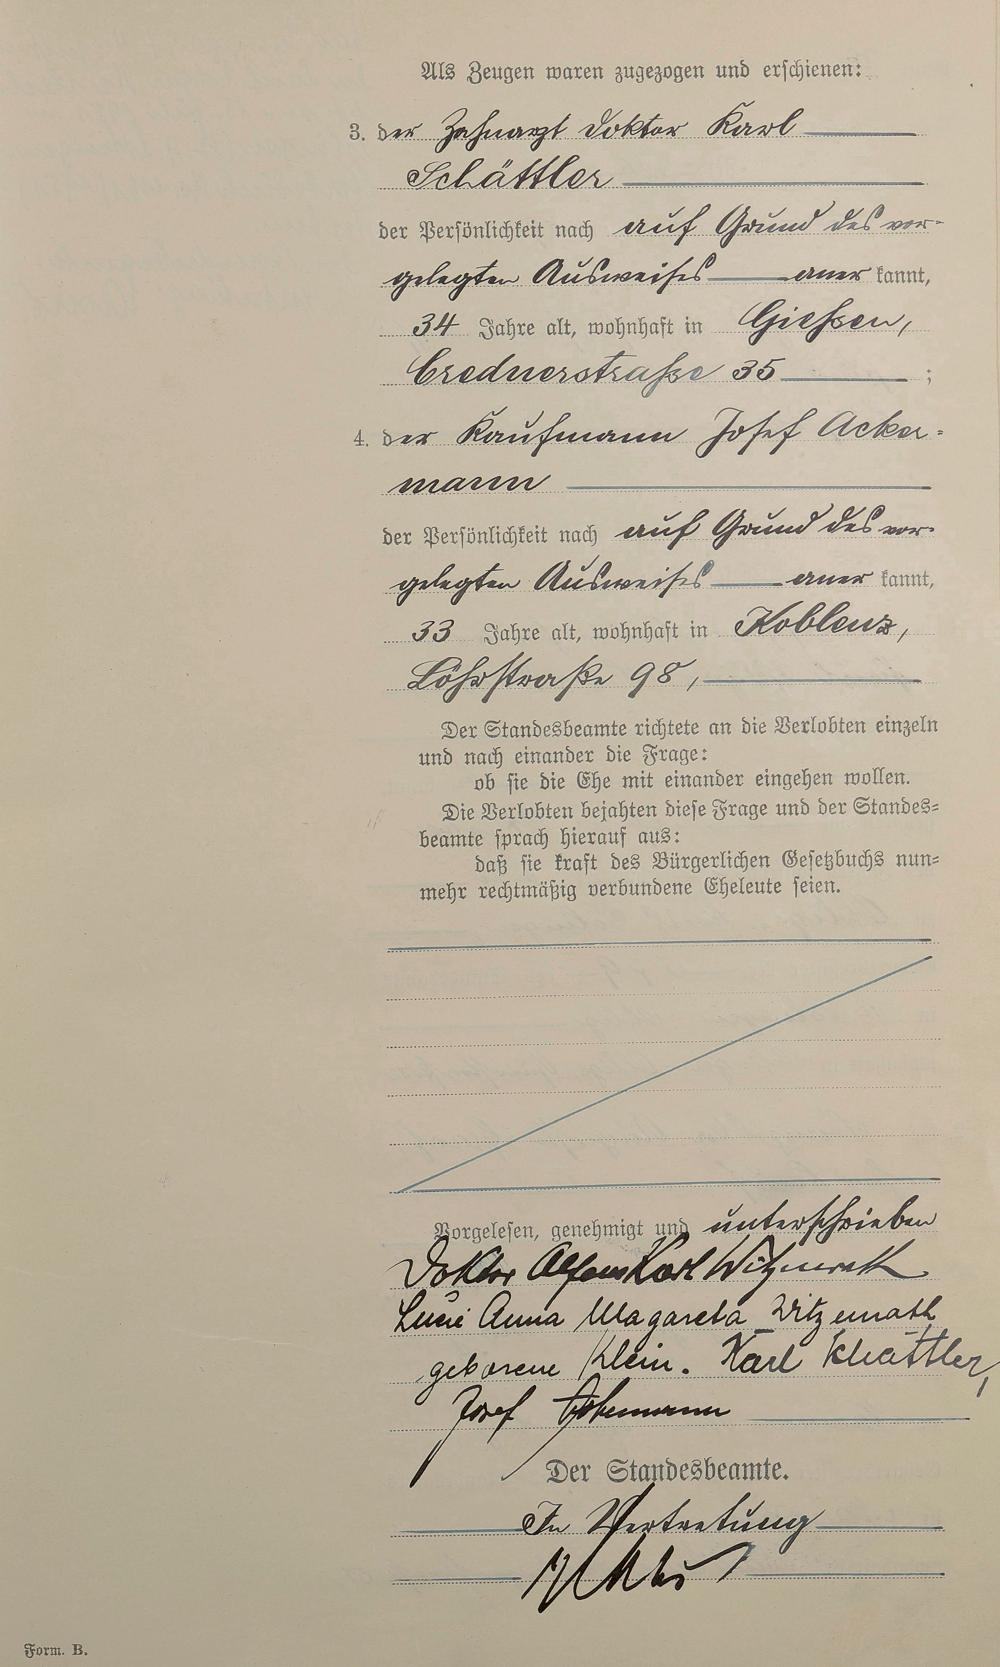 Als Zeugen waren zugezogen und erschienen:
3. der Zahnarzt Doktor Karl
Schättler
der Persönlichkeit nach auf Grund des vor-
gelegten Ausweises anerkannt,
34 Jahre alt, wohnhaft in Giessen,
Crednerstrasse 35 ;
4. der Kaufmann Josef Acker-
mann
der Persönlichkeit nach auf Grund des vor-
gelegten Ausweises anerkannt,
33 Jahre alt, wohnhaft in Koblenz,
Löhrstraße 98,
Der Standesbeamte richtete an die Verlobten einzeln
und nach einander die Frage:
ob sie die Ehe mit einander eingehen wollen.
Die Verlobten bejahten diese Frage und der Standes-
beamte sprach hierauf aus:
daß sie kraft des Bürgerlichen Gesetzbuchs nun-
mehr rechtmäßig verbundene Eheleute seien.
Vorgelesen, genehmigt und unterschrieben
Doktor Alfons Karl Witzmrath
Lucie Anna Magareta Witzemrath
geborene Klein. Karl Schättler,
Josef Ackermann
Der Standesbeamte.
In Vertretung
Form. B.